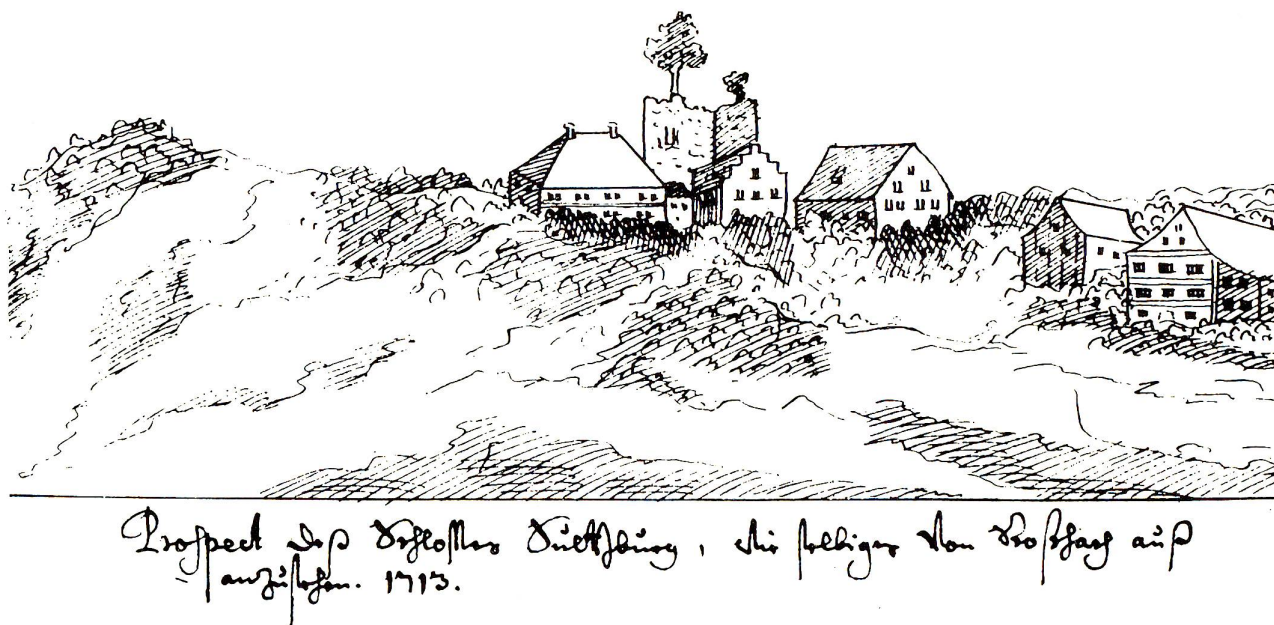 Prospect deß Schlosses Sultzburg, wie selbiges von Roschach auß
anzusehen. 1713.